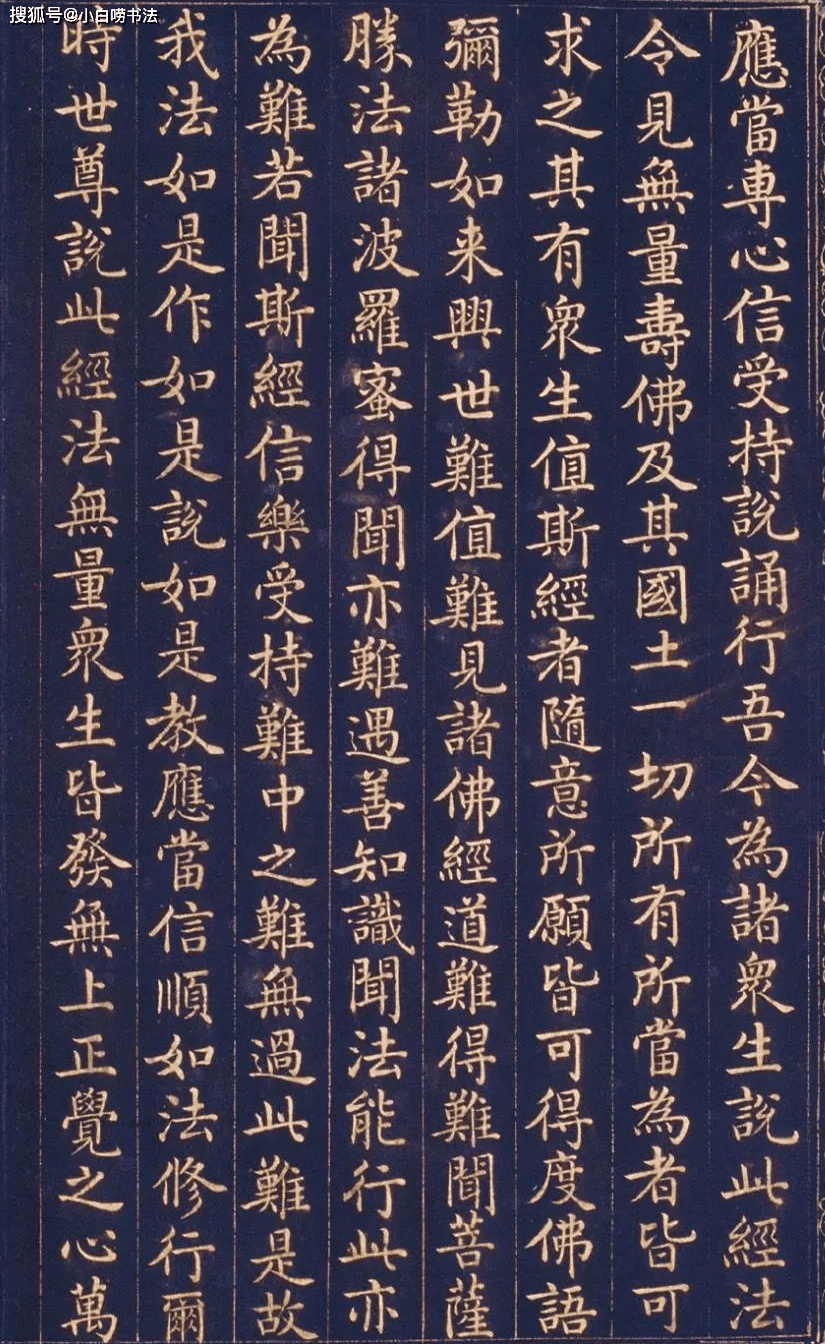 搜狐号@小白唠书法
應當専心信受持說誦行吾今為諸衆生說此經法
令見無量壽佛及其國土一切所有所當為者皆可
求之其有衆生值斯經者隨意所願皆可得度佛語
彌勒如来興世難值難見諸佛經道難得難聞菩薩
勝法諸波羅蜜得聞亦難遇善知識聞法能行此亦
為難若聞斯經信樂受持難中之難無過此難是故
我法如是作如是說如是教應當信順如法修行爾
時世尊說此經法無量衆生皆發無上正覺之心萬